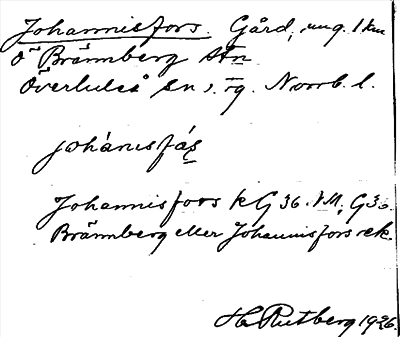 Johannisfors. Gård, ung. 1 km
ö Brännberg stn
Överluleå sn, Norrb. l.
johánisfáṣ
Johannisfors kG 36. JM. G36.
Brännberg eller Johannisfors ek.
H. Rutberg 1926.